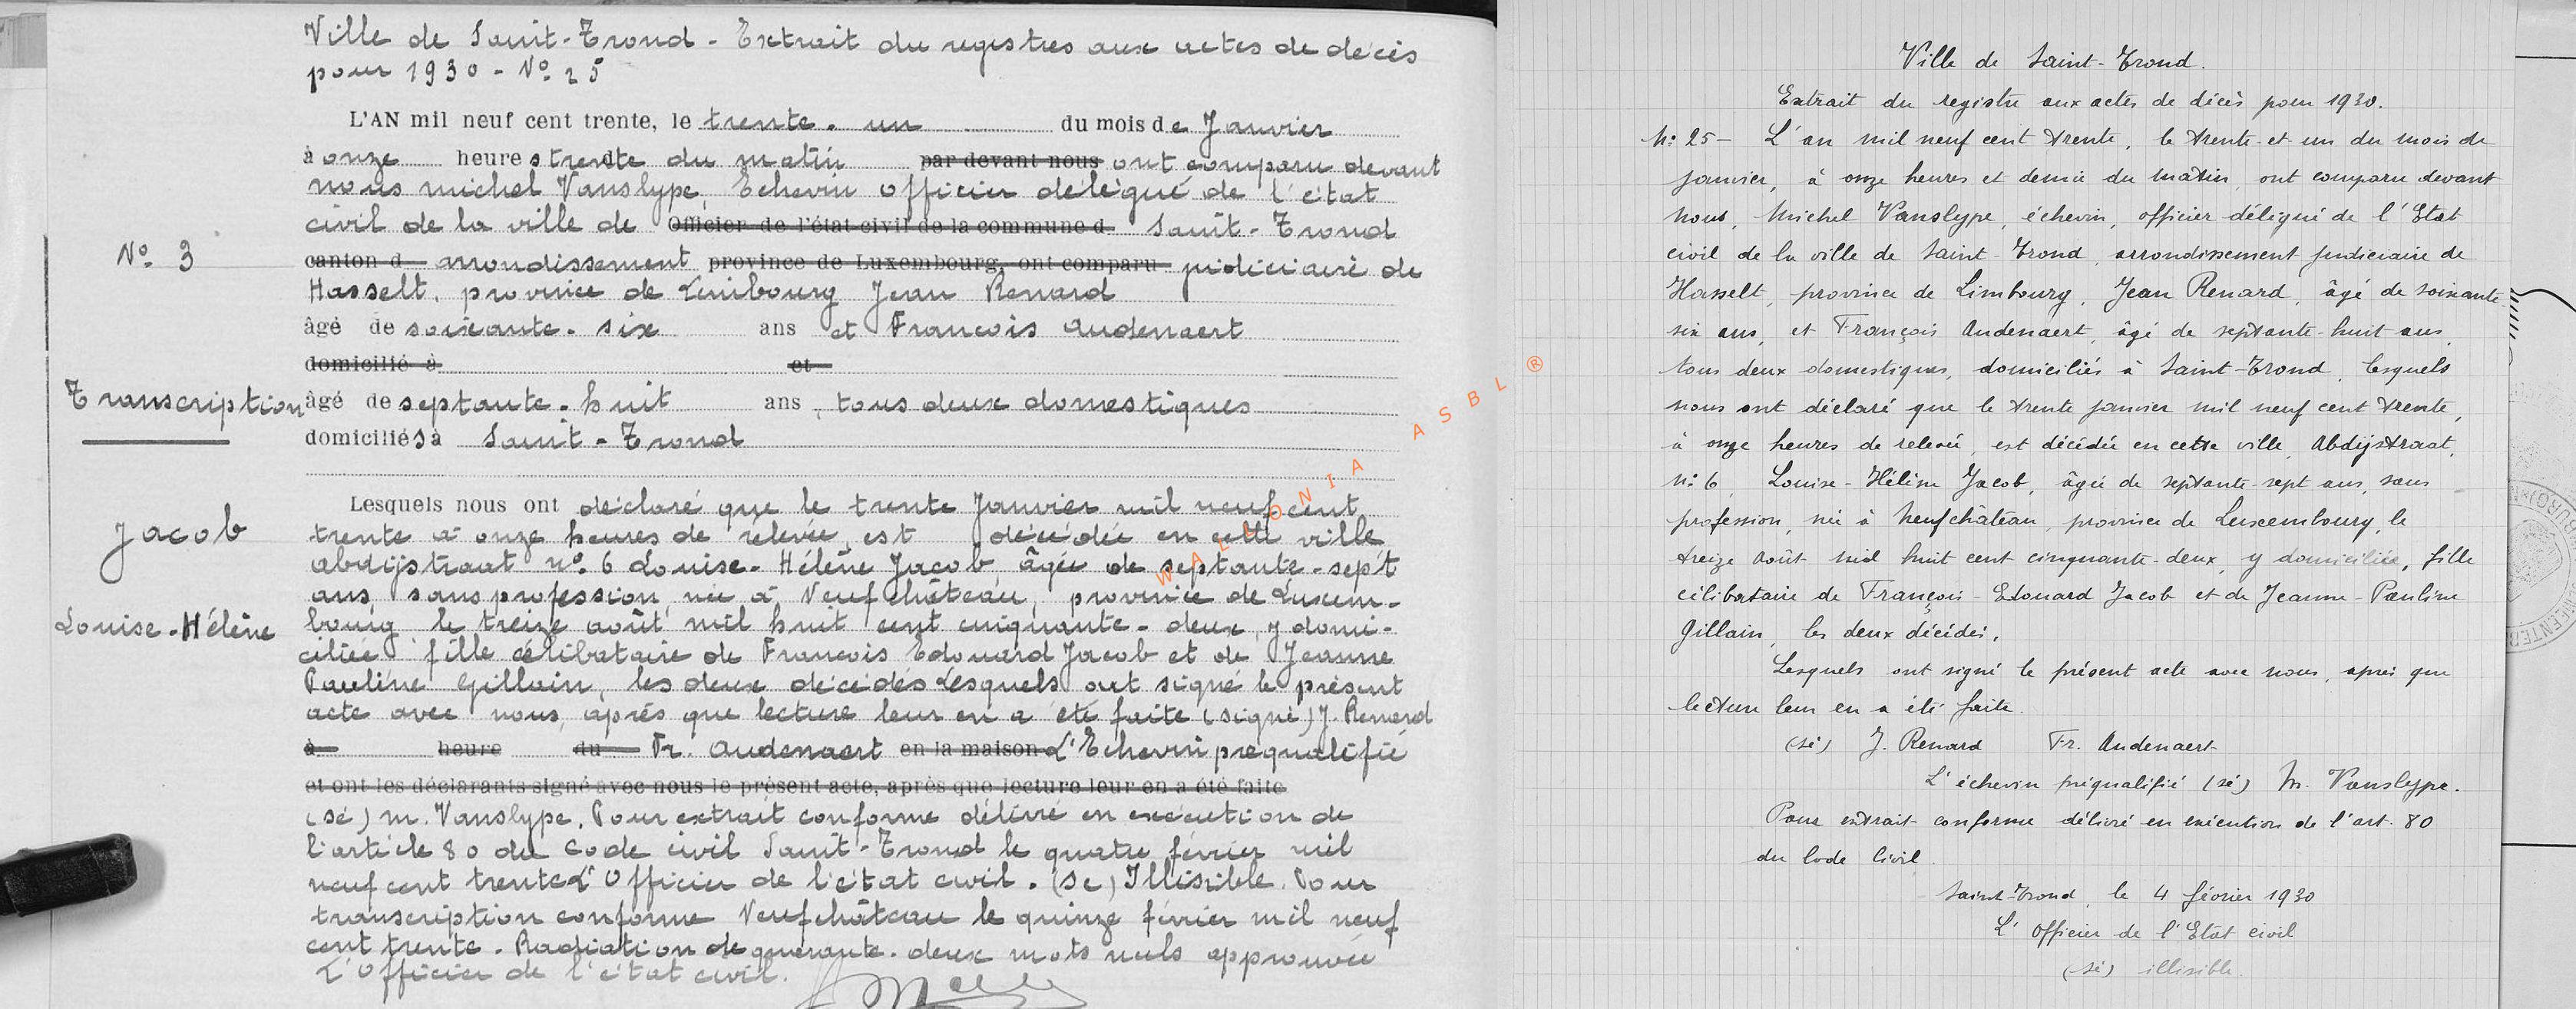 Ville de Saint-Trond - Extrait du registres aux actes de décès
pour 1930 - No. 25
L'AN mil neuf cent trente, le trente. un du mois de Janvier
à onze heures trente du matin par devant nous ont comparu devant
nous michel Vanslype, Echevin officier délégué de l'état
civil de la ville de Officier de l'état civil de la commune d Saint-Trond
No. 3
canton d arrondissement province de Luxembourg, ont comparu judiciaire de
Hasselt, province de Limbourg Jean Renard
âgé de soixante. six ans et Francois Audenaert
domicilié à et
Transcription
âgé de septante. huit ans, tous deux domestiques
domiciliés à Saint-Trond
Lesquels nous ont déclaré que le trente Janvier mil neuf cent
Jacob
trente à onze heures de relevée, est décédée en cette ville
abdijstraat no. 6 Louise-Hélène Jacob, âgée de septante-sept
ans, sans profession, née à Neufchâteau, province de Luxem-
Louise-Hélène
bourg le treize août mil huit cent cinquante-deux, y domi-
ciliée fille célibataire de Francois Edouard Jacob et de Jeanne
Pauline Gillain, les deux décédés Lesquels ont signé le présent
acte avec nous, après que lecture leur en a été faite (signé) J. Renard
à heure du Fr. Audenaert en la maison L'Echevin préqualifié
et ont les déclarants signé avec nous le présent acte, après que lecture leur en a été faite
(sé) m. Vanslype. Pour extrait conforme délivré en exécution de
l'article 80 du Code civil Saint-Trond le quatre février mil
neuf cent trente L'Officier de l'état civil. (sé) Illisible. Pour
transcription conforme Neufchâteau le quinze février mil neuf
cent trente. Radiation de quarante. deux mots nuls approuvée
L'Officier de l'état civil.
WALLONIA ASBL ®
Ville de Saint-Trond.
Extrait du registre aux actes de décès pour 1930.
No: 25 - L'an mil neuf cent trente, le trente et un du mois de
janvier, à onze heures et demie du matin, ont comparu devant
nous, Michel Vanslype, échevin, officier délégué de l'Etat
civil de la ville de Saint-Trond, arrondissement judiciaire de
Hasselt, province de Limbourg, Jean Renard, âgé de soixante
six ans, et François Audenaert, âgé de septante-huit ans,
tous deux domestiques, domiciliés à Saint-Trond, lesquels
nous ont déclaré que le trente janvier mil neuf cent trente,
à onze heures de relevée, est décédée en cette ville, Abdijstraat,
no: 6, Louise-Hélène Jacob, âgée de septante-sept ans, sans
profession, née à Neufchâteau, province de Luxembourg, le
treize août mil huit cent cinquante-deux, y domiciliée, fille
célibataire de François-Edouard Jacob et de Jeanne-Pauline
Gillain, les deux décédés.
Lesquels ont signé le présent acte avec nous, après que
lecture leur en a été faite.
(sé) J. Renard Fr. Audenaert
L'échevin préqualifié (sé) M. Vanslype.
Pour extrait conforme délivré en exécution de l'art. 80
du Code Civil.
Saint-Trond, le 4 février 1930
L'Officier de l'Etat civil
(sé) illisible.